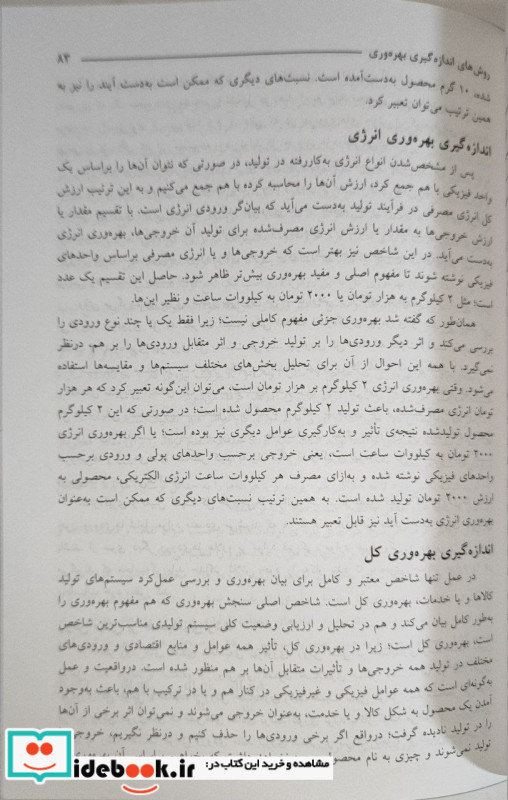 روش‌های اندازه‌گیری بهره‌وری ۸۳
شده، ۱۰ گرم محصول به‌دست‌آمده است. نسبت‌های دیگری که ممکن است به‌دست آیند را نیز به
همین ترتیب می‌توان تعبیر کرد.
اندازه‌گیری بهره‌وری انرژی
پس از مشخص‌شدن انواع انرژی به‌کاررفته در تولید، در صورتی که نتوان آن‌ها را براساس یک
واحد فیزیکی با هم جمع کرد، ارزش آن‌ها را محاسبه کرده با هم جمع می‌کنیم و به این ترتیب ارزش
کل انرژی مصرفی در فرآیند تولید به‌دست می‌آید که بیان‌گر ورودی انرژی است. با تقسیم مقدار یا
ارزش خروجی‌ها به مقدار یا ارزش انرژی مصرف‌شده برای تولید آن خروجی‌ها، بهره‌وری انرژی
به‌دست می‌آید. در این شاخص نیز بهتر است که خروجی‌ها و یا انرژی مصرفی براساس واحدهای
فیزیکی نوشته شوند تا مفهوم اصلی و مفید بهره‌وری بیش‌تر ظاهر شود. حاصل این تقسیم یک عدد
است؛ مثل ۲ کیلوگرم به هزار تومان یا ۲۰۰۰ تومان به کیلووات ساعت و نظیر این‌ها.
همان‌طور که گفته شد بهره‌وری جزئی مفهوم کاملی نیست؛ زیرا فقط یک یا چند نوع ورودی را
بررسی می‌کند و اثر دیگر ورودی‌ها را بر تولید خروجی و اثر متقابل ورودی‌ها را بر هم، درنظر
نمی‌گیرد. با همه این احوال از آن برای تحلیل بخش‌های مختلف سیستم‌ها و مقایسه‌ها استفاده
می‌شود. وقتی بهره‌وری انرژی ۲ کیلوگرم بر هزار تومان است، می‌توان این‌گونه تعبیر کرد که هر هزار
تومان انرژی مصرف‌شده، باعث تولید ۲ کیلوگرم محصول شده است؛ در صورتی که این ۲ کیلوگرم
محصول تولیدشده نتیجه‌ی تأثیر و به‌کارگیری عوامل دیگری نیز بوده است؛ یا اگر بهره‌وری انرژی
۲۰۰۰ تومان به کیلووات ساعت است، یعنی خروجی برجسب واحدهای پولی و ورودی برحسب
واحدهای فیزیکی نوشته شده و به‌ازای مصرف هر کیلووات ساعت انرژی الکتریکی، محصولی به
ارزش ۲۰۰۰ تومان تولید شده است. به همین ترتیب نسبت‌های دیگری که ممکن است به‌عنوان
بهره‌وری انرژی به‌دست آید نیز قابل تعبیر هستند.
اندازه‌گیری بهره‌وری کل
در عمل تنها شاخص معتبر و کامل برای بیان بهره‌وری و بررسی عمل‌کرد سیستم‌های تولید
کالاها و یا خدمات، بهره‌وری کل است. شاخص اصلی سنجش بهره‌وری که هم مفهوم بهره‌وری را
به‌طور کامل بیان می‌کند و هم در تحلیل و ارزیابی وضعیت کلی سیستم تولیدی مناسب‌ترین شاخص
است، بهره‌وری کل است؛ زیرا در بهره‌وری کل، تأثیر همه عوامل و منابع اقتصادی و ورودی‌های
مختلف در تولید همه خروجی‌ها و تأثیرات متقابل آن‌ها بر هم منظور شده است. درواقعیت و عمل
به‌گونه‌ای است که همه عوامل فیزیکی و غیرفیزیکی در کنار هم و یا در ترکیب با هم، باعث به‌وجود
آمدن یک محصول به شکل کالا و یا خدمت، به‌عنوان خروجی می‌شوند و نمی‌توان اثر برخی از آن‌ها
را در تولید نادیده گرفت؛ درواقع اگر برخی ورودی‌ها را حذف کنیم و درنظر نگیریم، خروجی
تولید نمی‌شوند و چیزی به نام محصول
مشاهده و خرید این کتاب در:
idebook.ir